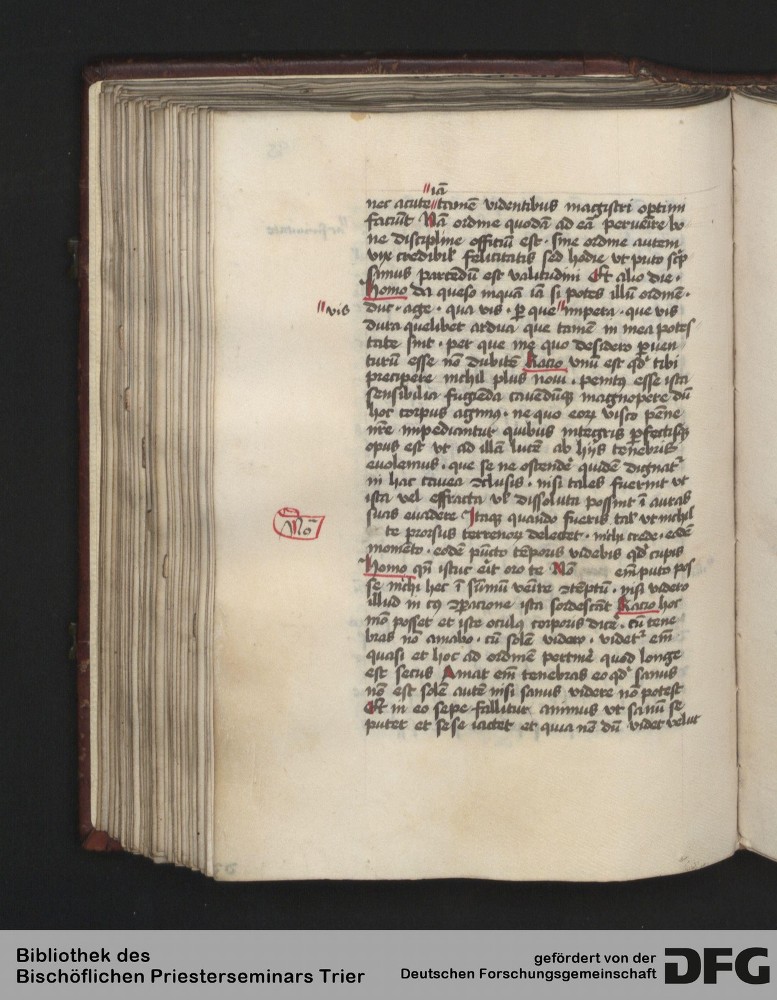 iã
nec acute tamē videntibus magistri optimi
faciūt Nã ordine quodã ad eã pervenire bo
ne discipline officiū est · sine ordine autem
vix credibilꝭ felicitatis sed hodie vt puto scp
simus parcedū est valitudini Et alio die ·
Homo da queso inquã iã si potes illū ordinē ·
duc · age · qua vis · ꝑ que impera · que vis
vis
dura quelibet ardua que tamē in mea potes
tate sint · per que me quo desidero ꝑuen
turū esse nō dubitē Racio vnū est qd' tibi
precipere nichil plus novi · penitꝰ esse ista
sensibilia fugieda cauendūqꝫ magnopere dū
hoc corpus agimꝰ · ne quo eoꝝ visco penne
nr̄e impediantur quibus integris ꝑfectisqꝫ
opus est vt ad illã lucē ab hijs tenebris
euolemus · que se ne ostendē quidē dignat᷑
in hac cauea ꝯclusis · nisi tales fuerint vt
ista vel effracta vl' dissoluta possint ī auras
suas euadere Itaqꝫ quando fueris tal' vt nichil
Nō
te prorsus terrenoꝝ delectet · michi crede · eodē
momēto · eodē pūcto tēporis videbis qd' cupis
Homo qn̄ istuc eīt oro te Nō em̄ puto pos
se michi hec ī sūmū venīre ꝯtēptū · nisi videro
illud in cꝰ ꝯꝑacione ista sordescāt Racio hoc
mō posset et iste oculꝰ corporis dicē · cū tene
bras nō amabo · cū solē videro · videt᷑ em̄
quasi et hoc ad ordinē pertinē quod longe
est secus Amat em̄ tenebras eo qd' sanus
nō est solē autē nisi sanus videre nō potest
Et in eo sepe fallitur animus vt sanū se
putet et sese iactet et quia nō dū videt velut
Bibliothek des
Bischöflichen Priesterseminars Trier
gefördert von der
Deutschen Forschungsgemeinschaft
DFG